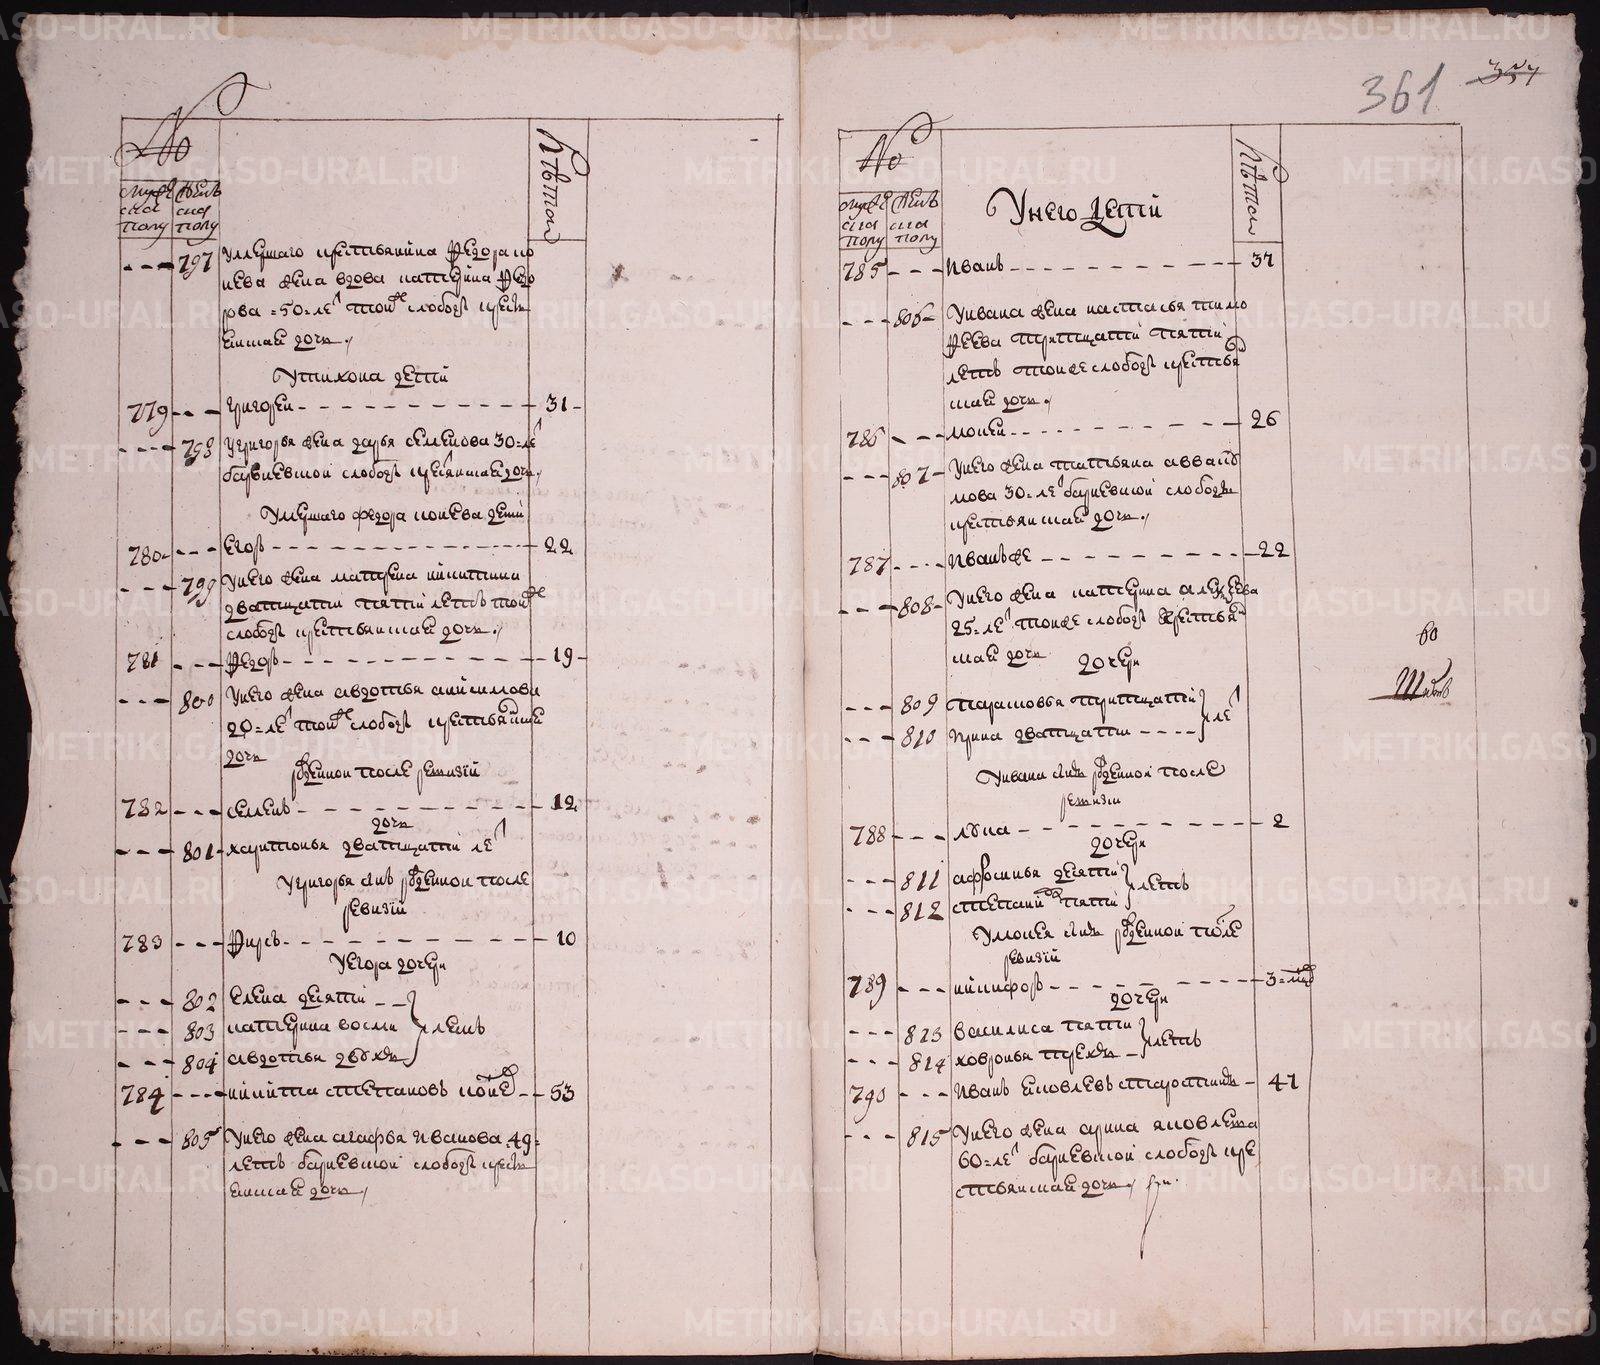 №
мужеска полу
женска полу
лѣта
797 Умершаго крестьянина Федора Ко
нева жена вдова катерина Федо
рова = 50 = ле той же слободы кресть
янская дочь
У тихона дети
779 григореи 31
798 У григорья жена дарья семенова 30 = ле
барневской слободы кресьянская дочь
Умершаго федора конева дети
780 Егоръ 22
799 У него жена матрена никитина
дватцати пяти летъ той же
слободы крестьянская дочь
781 Федоръ 19
800 У него жена авдотья
20 = ле той же слободы крестьянская
дочь
рожденной после ревизии
782 семенъ 12
дочь
801 харитонья дватцати ле
У григорья сынъ рожденной после
ревизии
783 Фирсъ 10
У егора дочери
802 Елена десяти
803 катерина восми летъ
804 авдотья двухъ
784 никита степановъ коне 53
805 У него жена агафья Иванова 49 =
летъ барневской слободы кресть
янская дочь
361
357
№
мужеска полу
женска полу
У него дети
лѣта
785 Иванъ 37
806 У ивана жена настасья тимо
феева тритцати пяти
летъ той же слободы крестьян
ская дочь
786 мокеи 26
807 У него жена татьяна авваку
мова 30 = ле барневской слободы
крестьянская дочь
787 Иванъ же 22
808 У него жена катерина алексеева
25 = ле той же слободы крестьян
ская дочь
дочери
809 парасковья тритцати
810 Ирина дватцати ле
У ивана сынъ рожденной после
ревизии
788 лука 2
дочери
811 афросинья десяти
812 степанида пяти летъ
У мокея сынъ рожденной после
ревизии
789 никифоръ 3 = мцъ
дочери
813 василиса пяти
814 ховронья трехъ летъ
790 Иванъ Яковлевъ старостинъ 47
815 У него жена арина яковлева
60 = ле барневской слободы кре
стьянская дочь
METRIKI.GASO-URAL.RU